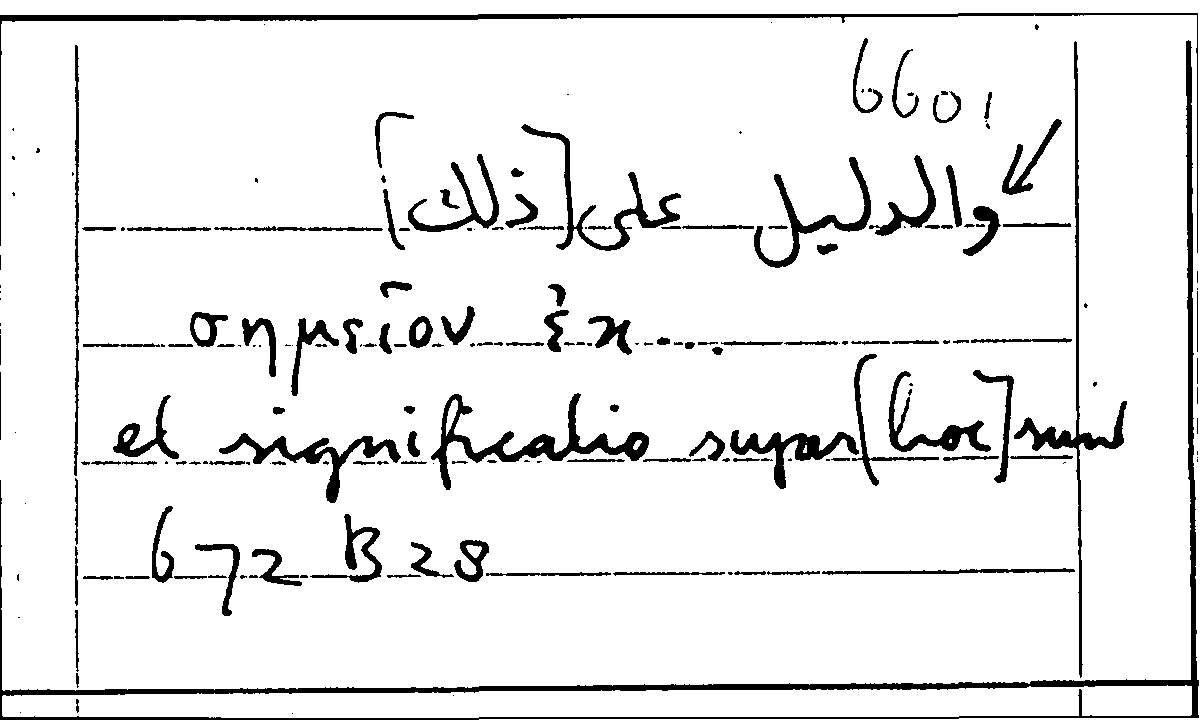 6601
والدليل على [ذلك]
σημεῖον ἐκ...
et significatio super [hoc] sunt
672 B 28